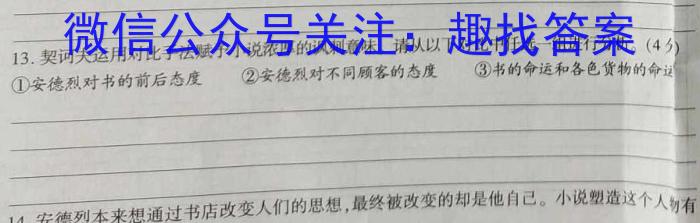 微信公众号关注：趣找答案
13. 契诃夫运用对比手法赋予小说浓厚的讽刺意味，请从以下 进行 (4分)
①安德烈对书的前后态度 ②安德烈对不同顾客的态度 ③书的命运和各色货物的命运
14. 安德列本来想通过书店改变人们的思想,最终被改变的却是他自己。小说塑造这个人物有